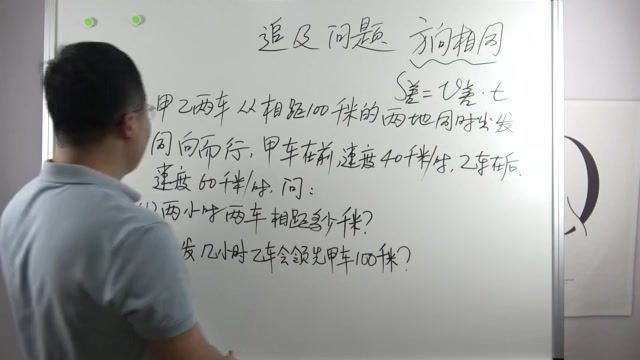 追及问题 方向相同
S差=V差·t
甲乙两车从相距100千米的两地同时出发
同向而行,甲车在前,速度40千米/时,乙车在后,
速度60千米/时.问:
两小时两车相距多少千米?
发几小时乙车会领先甲车100千米?
Q